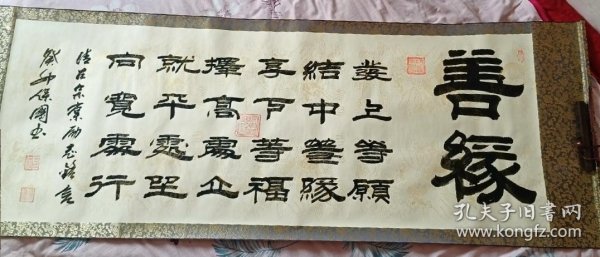 善緣
發上等願
結中等緣
享下等福
擇高處立
就平處坐
向寬處行
清左宗棠勵志
保國書
孔夫子旧书网
www.kongfz.com